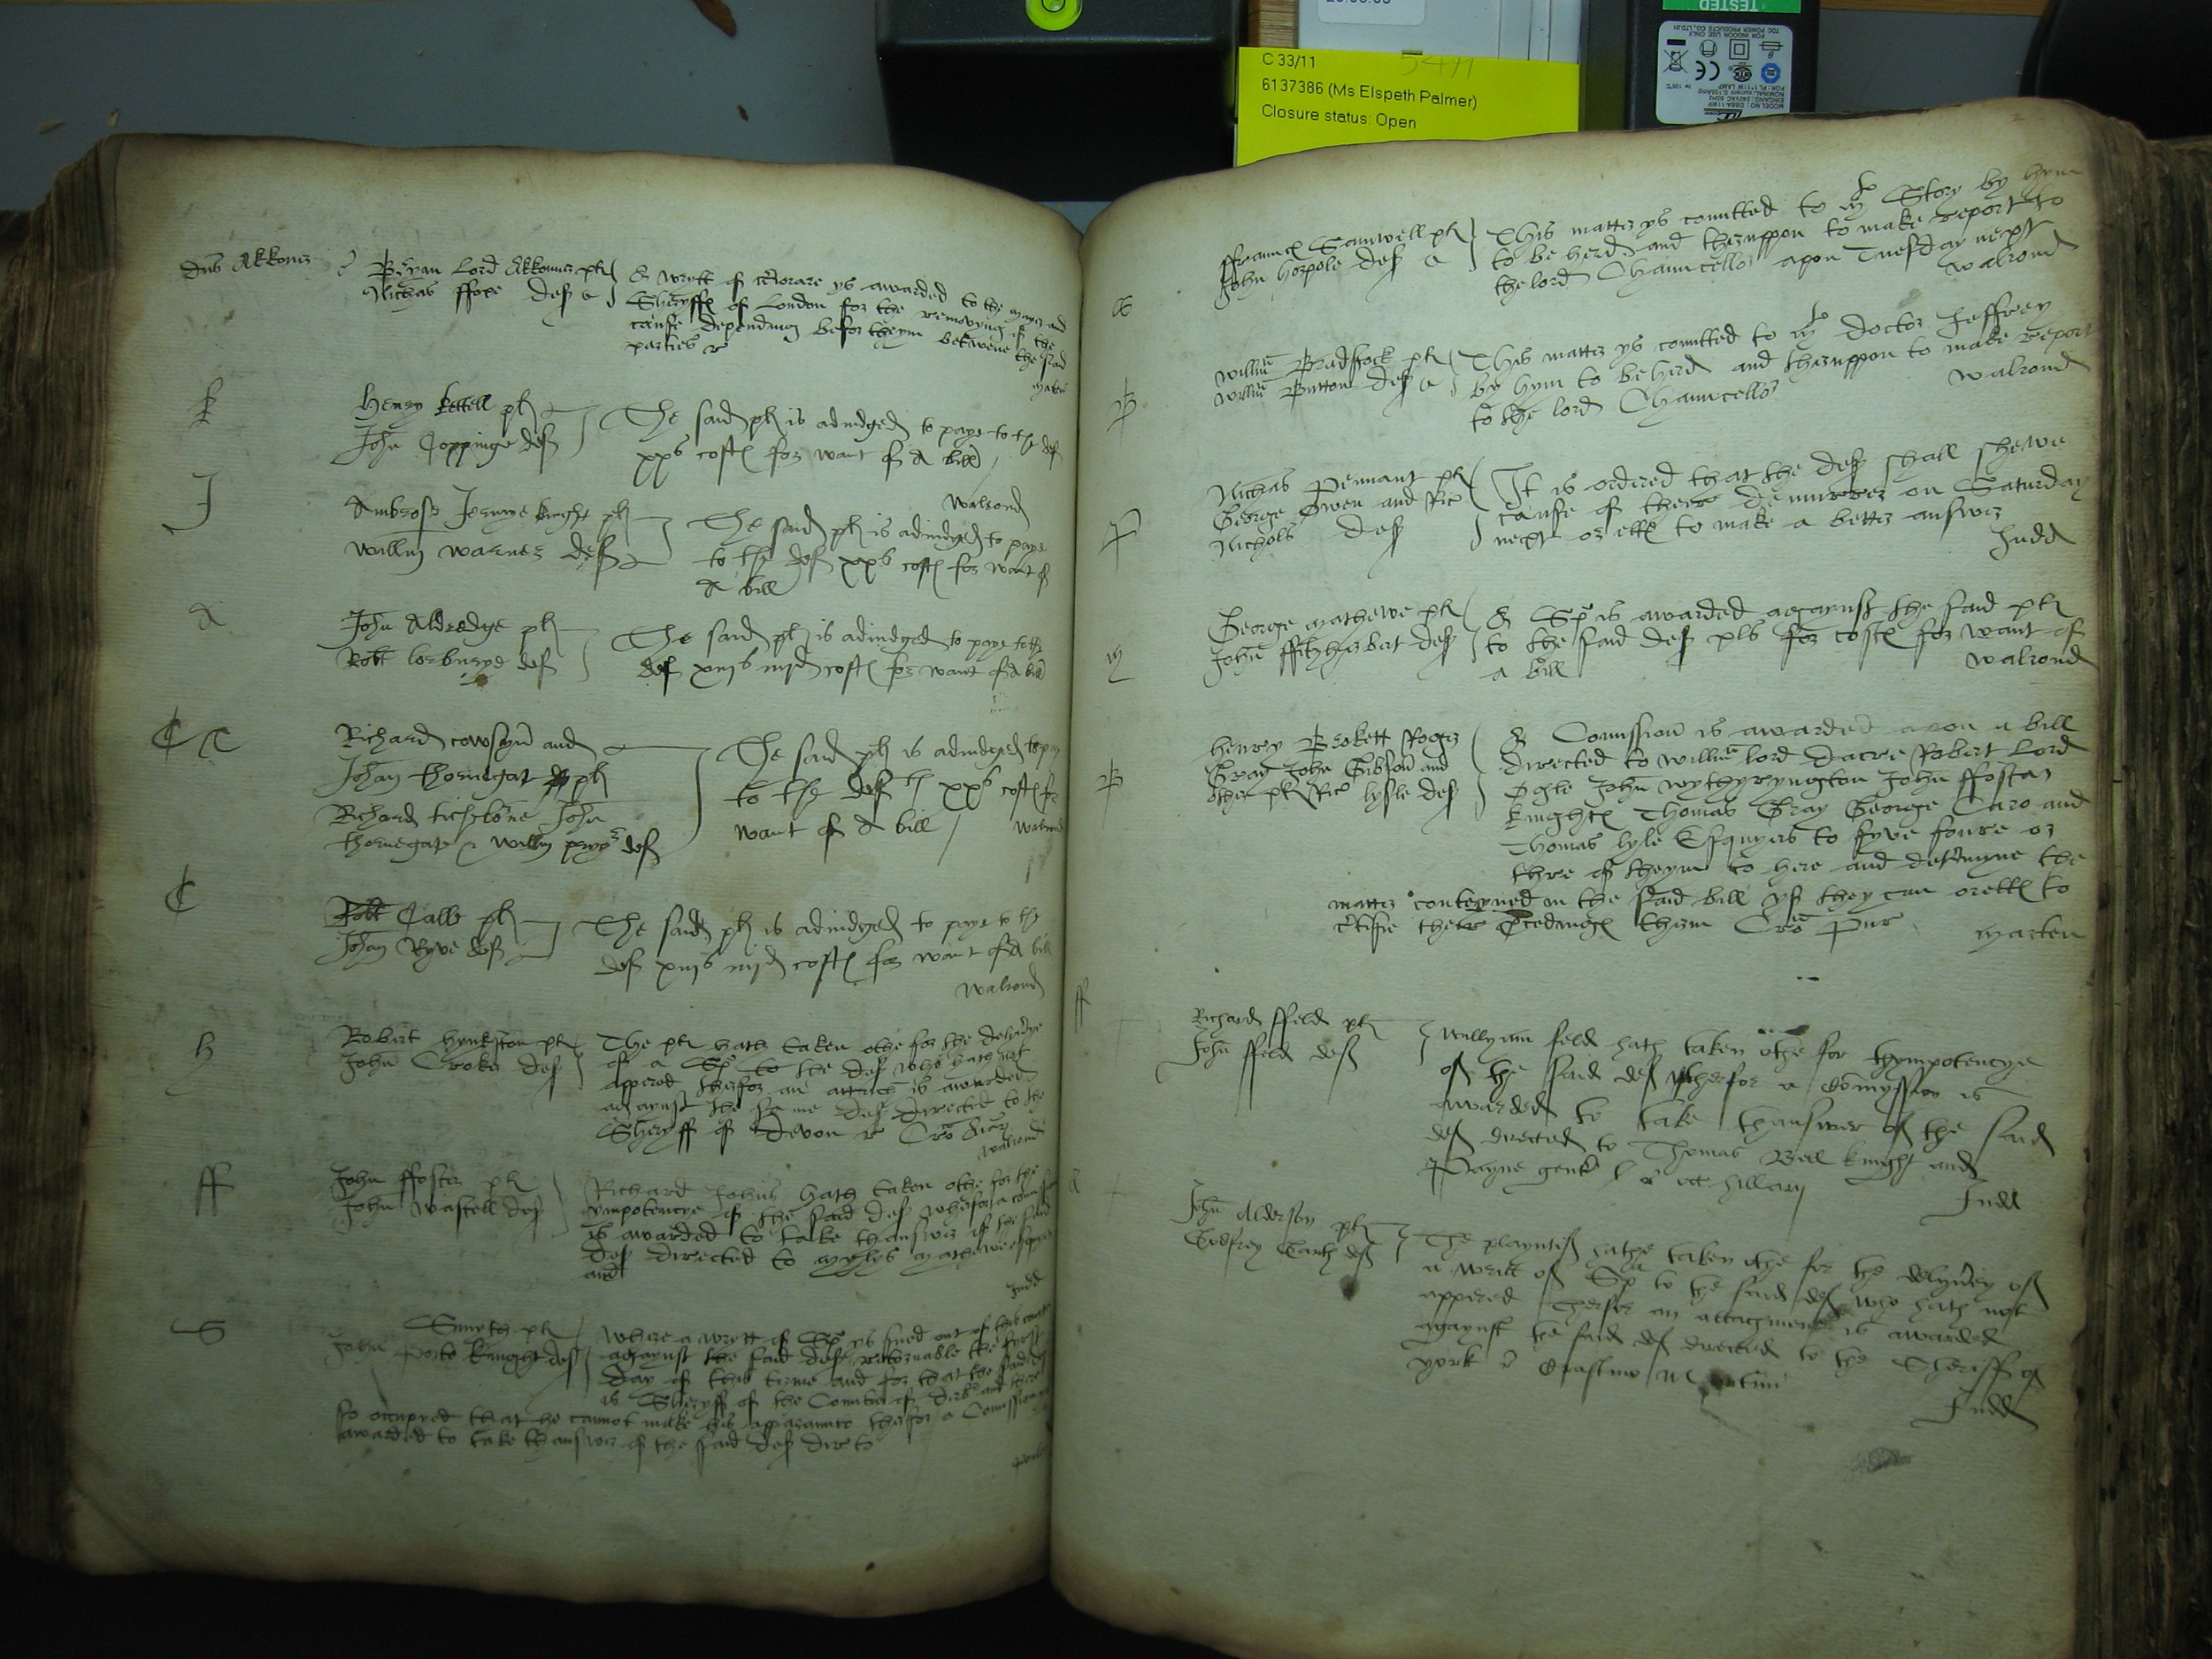 TESTED
C 33/11
6137386 (Ms Elspeth Palmer)
Closure status: Open
Bryan Lord plt
Nichas ffoxe def
A wrytt of is awarded to the mayer and
Sheryffs of London for the removyng of the
cause dependinge befor theym betwene the said
parties
k
Henry kettell plt
John Joppinge def
The said plt is adiudged to paye to the def
xxs costs for want of A bill
J
Walrond
Ambrose Jermye knight plt
Willm warner def
The said plt is adiudged to paye
to the def xxs costs for want of
A bill
A
John Aldredge plt
Robt def
The said plt is adiudged to paye to the
def xiijs iiijd costs for want of A bill
C
Richard cowsyn and
Johan thornegat plt
Richard tichborne John
thornegate & Willm def
The said plt is adiudged to pay
to the def xxs costs for
want of A bill
Walrond
C
Robt Calle plt
Johan Ryve def
The said plt is adiudged to paye to the
def xiijs iiijd costs for want of A bill
Walrond
H
Robert hynkston plt
John Croker def
The plt hath taken othe for the delyverye
of a Sp to the def who hath not
appered therfor an attach is awarded
agaynst the same def directed to the
Sheryff of Devon
Walrond
ff
John ffoster plt
John Wastell def
Richard Johns hath taken othe for the
ympotencye of the said def wherfor a
is awarded to take thanswer of the said
def directed to myles mathewe
and
Judd
S
Smyth plt
John Porte knight def
Where a wrytt of Sp ys sued out of this
agaynst the said def retornable the fyrst
day of this terme and for that the said
is Sheryff of the Countie of and
so occupyed that he cannot make his apparaunce therfor a Comission
awarded to take thanswer of the said def dir to
ffraunces Samwell plt
John horpole def
This matter ys comitted to Mr Story by hym
to be herd and theruppon to make report to
the lord Chauncellor apon Tuesday next
Walrond
B
Willm Bradstock plt
Willm Button def
This matter ys comitted to Mr doctor Jeffrey
by hym to be herd and theruppon to make report
to the lord Chauncellor
Walrond
P
Nichas Pennant plt
George Owen and Ric
Nichols def
It is ordered that the def shall shewe
cause of there demurrer on Saturday
next or ells to make a better answer
Judd
M
George Mathewe plt
John ffitzherbert def
A Sp is awarded agaynst the said plt
to the said def xls for costs for want of
a bill
Walrond
B
Henry Brokett Roger
Gray John Gibson and
other plt Ric lysle def
A Comission is awarded apon a bill
directed to Willm lord Dacre Robert Lord
Ogle John wythryngton John ffoster
knights Thomas Gray George Caro and
Thomas lyle Esquyers to fyve foure or
thre of theym to here and determyne the
matter conteyned in the said bill yf they can or ells to
certifie there procedings therin Cro Pur
Marten
ff
Richard ffeld plt
John ffeld def
Willyam feld hath taken othe for thympotencye
of the said def therfor a Comyssion is
awarded to take thanswer of the said
def directed to Thomas Bell knight and
Payne gent hillary
Judd
A
John Alderson plt
Godfrey Garth def
The playntif hathe taken othe for the delyverey of
a writt of Sp to the said def who hath not
appered Therfor an attachment is awarded
agaynst the said def directed to the Sheriff of
york Crastino Martini
Judd